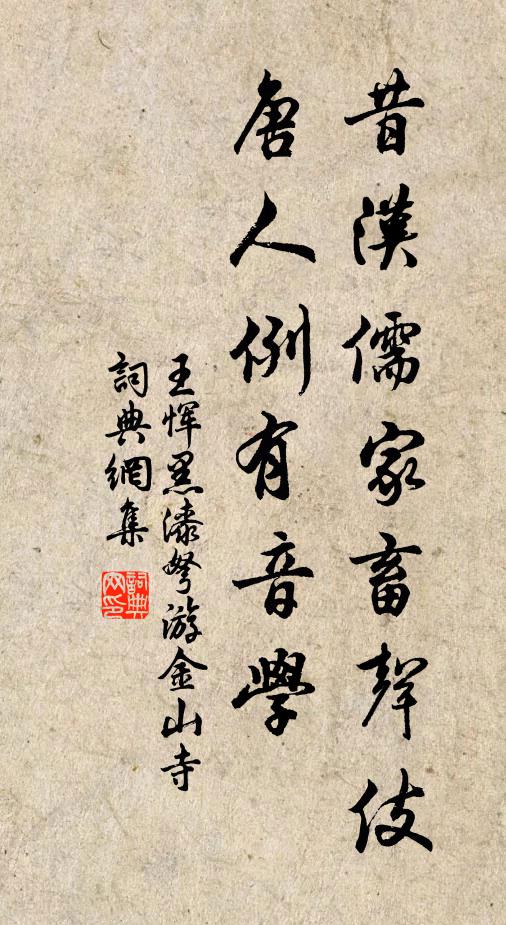 昔漢儒家畜聲伎
唐人例有音學
王恽黑漆弩游金山寺
詞典網集
詞典网印